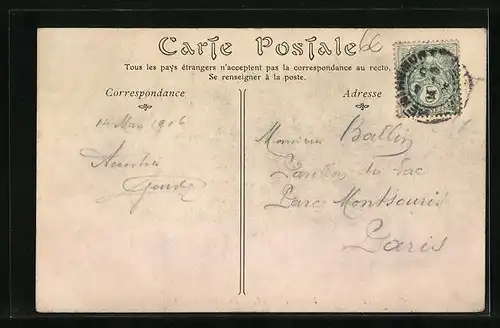 Carte Postale
Tous les pays étrangers n'acceptent pas la correspondance au recto.
Se renseigner à la poste.
Correspondance
Adresse
14 Mai 1906
Monsieur Ballin
Pavillon du Lac
Parc Montsouris
Paris
5